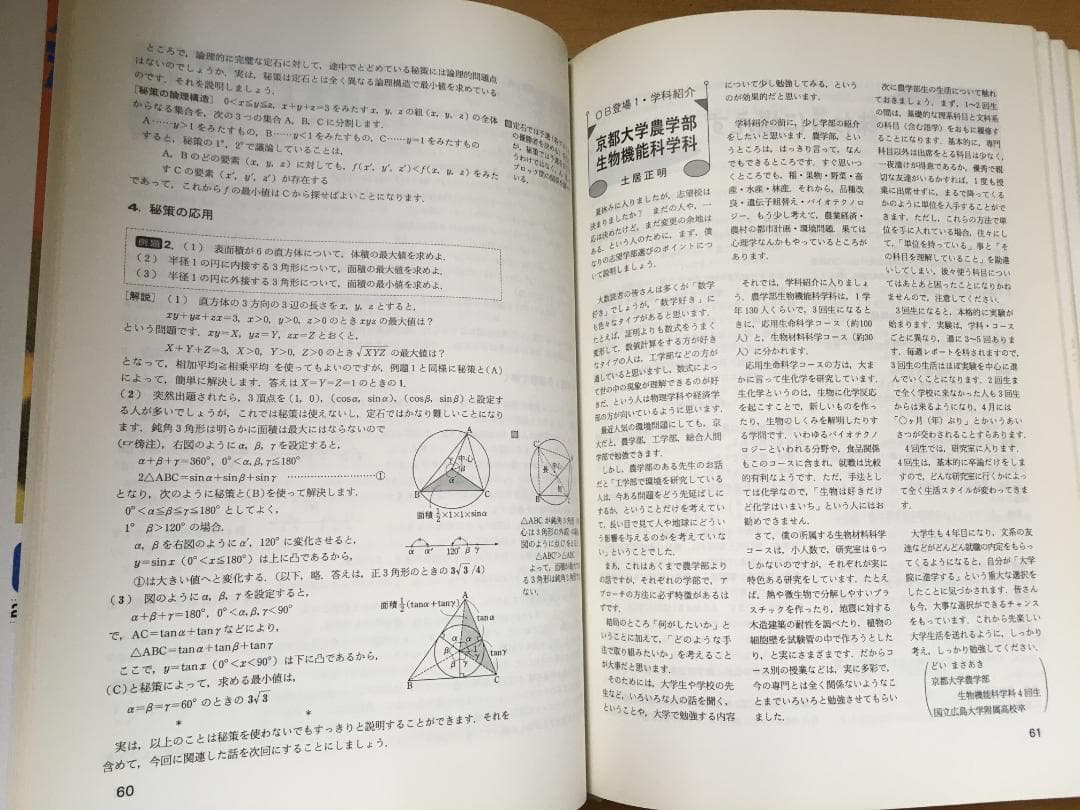 ところで，論理的に完璧な定石に対して，途中でとどめている秘策には論理的問題点
はないのでしょうか．実は，秘策は定石とは全く異なる論理構造で最小値を求めている
のです．それを説明しましょう．
［秘策の論理構造］ 0<x≦y≦z，x+y+z=3をみたすx，y，zの組(x，y，z)の全体
からなる集合を，次の3つの集合A，B，Cに分割します．
A……y>1をみたすもの，B……y<1をみたすもの，C……y=1をみたすもの
すると，秘策の1°，2°で議論していることは，
A，Bのどの要素(x，y，z)に対しても，f(x′，y′，z′)<f(x，y，z)をみた
すCの要素(x′，y′，z′)が存在する
であって，これからfの最小値はCから探せばよいことになります．
4．秘策の応用
例題2．（1） 表面積が6の直方体について，体積の最大値を求めよ．
（2） 半径1の円に内接する3角形について，面積の最大値を求めよ．
（3） 半径1の円に外接する3角形について，面積の最小値を求めよ．
［解説］（1） 直方体の3方向の3辺の長さをx，y，zとすると，
xy+yz+zx=3，x>0，y>0，z>0のときxyzの最大値は？
という問題です．xy=X，yz=Y，zx=Zとおくと，
X+Y+Z=3，X>0，Y>0，Z>0のとき√XYZの最大値は？
となって，相加平均≧相乗平均 を使ってもよいのですが，例題1と同様に秘策と(A)
によって，簡単に解決します．答えはX=Y=Z=1のときの1．
（2） 突然出題されたら，3頂点を(1，0)，(cosα，sinα)，(cosβ，sinβ)と設定す
る人が多いでしょうが，これでは秘策は使えないし，定石ではかなり難しいことになり
ます．鈍角3角形は明らかに面積は最大にはならないので
（☞傍注），右図のようにα，β，γを設定すると，
α+β+γ=360°，0°<α，β，γ≦180°
2△ABC=sinα+sinβ+sinγ ……………①
となり，次のように秘策と(B)を使って解決します．
0°<α≦β≦γ≦180°としてよく，
1° β>120°の場合．
α，βを右図のようにα′，120°に変化させると，
y=sinx (0°<x≦180°)は上に凸であるから，
①は大きい値へと変化する．（以下，略．答えは，正3角形のときの3√3/4）
（3） 図のようにα，β，γを設定すると，
α+β+γ=180°，0°<α，β，γ<90°
で，AC=tanα+tanγなどにより，
△ABC=tanα+tanβ+tanγ
ここで，y=tanx (0°<x<90°)は下に凸であるから，
(C)と秘策によって，求める最小値は，
α=β=γ=60°のときの3√3
* *
実は，以上のことは秘策を使わないでもすっきりと説明することができます．それを
含めて，今回に関連した話を次回にすることにしましょう．
60
A
γ 中心
β
α
B C
面積½×1×1×sinα
α α′ 120° β γ
面積½(tanα+tanγ)
A
tanα
tanγ
B C
△ABCが鈍角3角形
OB登場1・学科紹介
京都大学農学部
生物機能科学科
土居正明
夏休みに入りましたが，志望校は
決まりましたか？ まだの人や，一
応は決めたけど，まだ変更の余地は
ある，という人のために，まず，僕
なりの志望学部選びのポイントにつ
いて説明しましょう．
大数読者の皆さんは多くが「数学
好き」でしょうが，「数学好き」に
も色々なタイプがあると思います．
たとえば，証明よりも数式をうまく
変形して，数値計算をする方が好き
なタイプの人は，工学部などの方が
適していると思いますし，数式によっ
て世の中の現象が理解できるのが好
きだ，という人は物理学科や経済学
部の方が向いているように思います．
最近人気の環境問題にしても，京
大だと，農学部，工学部，総合人間
学部で勉強できます．
しかし，農学部のある先生のお話
だと「工学部で環境を研究している
人は，今ある問題をどう先延ばしに
するか，ということだけを考えてい
て，長い目で見て人や地球にどうい
う影響を与えるのかを考えていな
い」ということでした．
まあ，これはあくまで農学部より
の話ですが，それぞれの学部で，ア
プローチの方法に必ず特徴があるは
ずです．
結局のところ「何がしたいか」と
いうことに加えて，「どのような手
法で取り組みたいか」を考えること
が大事だと思います．
そのためには，大学生や学校の先
生など，いろいろな人の話を聞く，
ということや，大学で勉強する内容
について少し勉強してみる，という
のが効果的だと思います．
学科紹介の前に，少し学部の紹介
をしたいと思います．農学部，とい
うところは，はっきり言って，なん
でもできるところです．すぐ思いつ
くところでも，稲・果物・野菜・畜
産・水産・林産．それから，品種改
良・遺伝子組替え・バイオテクノロ
ジー．もう少し考えて，農業経済・
農村の都市計画・環境問題．果ては
心理学なんかもやっているところが
あります．
それでは，学科紹介に入りましょ
う．農学部生物機能科学科は，1学
年130人くらいで，3回生になると
きに，応用生命科学コース（約100
人）と，生物材料科学コース（約30
人）に分かれます．
応用生命科学コースの方は，大ま
かに言って生化学を研究しています．
生化学というのは，生物に化学反応
を起こすことで，新しいものを作っ
たり，生物のしくみを解明したりす
る学問です．いわゆるバイオテクノ
ロジーといわれる分野や，食品関係
もこのコースに含まれ，就職は比較
的有利なようです．ただ，手法とし
ては化学なので，「生物は好きだけ
ど化学はいまいち」という人にはお
勧めできません．
さて，僕の所属する生物材料科学
コースは，小人数で，研究室は6つ
しかないのですが，それぞれが実に
特色ある研究をしています．たとえ
ば，熱や微生物で分解しやすいプラ
スチックを作ったり，地震に対する
木造建築の耐性を調べたり，植物の
細胞壁を試験管の中で作ろうとした
り，と実にさまざまです．だからコ
ース別の授業などは，実に多彩で，
今の専門とは全く関係ないようなこ
とまでいろいろと勉強させてもらい
ました．
次に農学部生の生活について触れ
ておきましょう．まず，1〜2回生
の間は，基礎的な理系科目と文科系
の科目（含む語学）をおもに履修す
ることになります．基本的に，専門
科目以外は出席をとる科目は少なく，
一夜漬けが得意であるか，優秀で親
切な友達がいるかすれば，1度も授
業に出席せずに，まるで降ってくる
かのように単位を入手することがで
きます．ただし，これらの方法で単
位を手に入れている場合，往々にし
て，「単位を持っている」事と「そ
の科目を理解していること」を勘違
いしてしまい，後々使う科目につい
てはあとあと困ったことになりかね
ませんので，注意してください．
3回生になると，本格的に実験が
始まります．実験は，学科・コース
ごとに異なり，週に3〜5回ありま
す．毎週レポートを科されますので，
3回生の生活はほぼ実験を中心に進
んでいくことになります．2回生ま
で全く学校に来なかった人も3回生
からは来るようになり，4月には
「〇ヶ月（年）ぶり」とかいうあい
さつが交わされることすらあります．
4回生では，研究室に入ります．
4回生は，基本的に卒論だけをしま
すので，どんな研究室に行くかによっ
て全く生活スタイルが変わってきま
す．
大学生も4年目になり，文系の友
達などがどんどん就職の内定をもらっ
てくるようになると，自分が「大学
院に進学する」という重大な選択を
したことに気づかされます．皆さん
も今，大事な選択ができるチャンス
をもっています．これから先楽しい
大学生活を送れるように，しっかり
考え，しっかり勉強してください．
どい まさあき
京都大学農学部
生物機能科学科4回生
国立広島大学附属高校卒
61